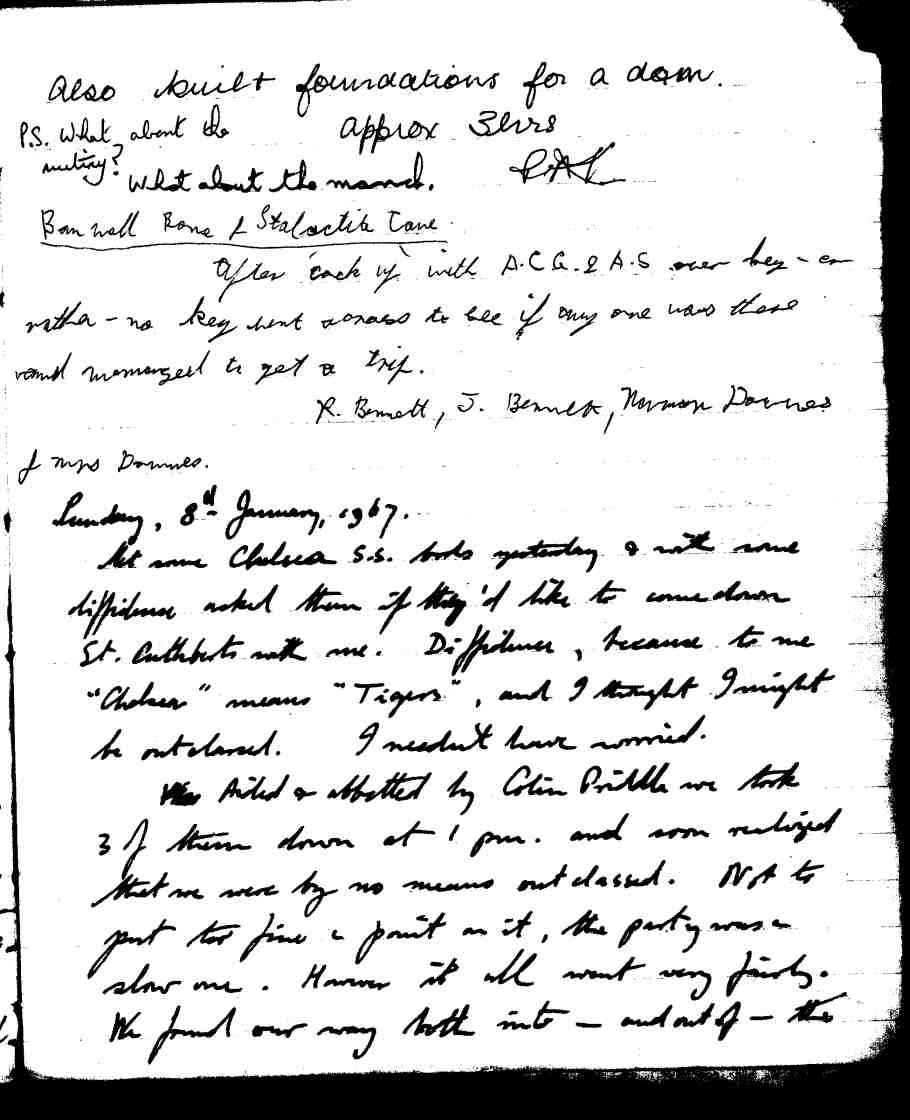 Also built foundations for a dam.
P.S. What about the
mutiny?
approx 3hrs
What about the manch.
Banwell Bone & Stalactite Cave.
After 'cock up' with A.C.G. & A.S over key - or
rather - no key went across to see if any one was there
and managed to get a trip.
R. Bennett, J. Bennett, Norman Downes
& Mrs Downes.
Sunday, 8th January, 1967.
Met some Chelsea S.S. bods yesterday & with some
diffidence asked them if they'd like to come down
St. Cuthberts with me. Diffidence, because to me
"Chelsea" means "Tigers", and I thought I might
be outclassed. I needn't have worried.
Aided & abbetted by Colin Priddle we took
3 of them down at 1 pm. and soon realized
that we were by no means outclassed. Not to
put too fine a point on it, the party was a
slow one. However it all went very fairly.
We found our way both into - and out of - the